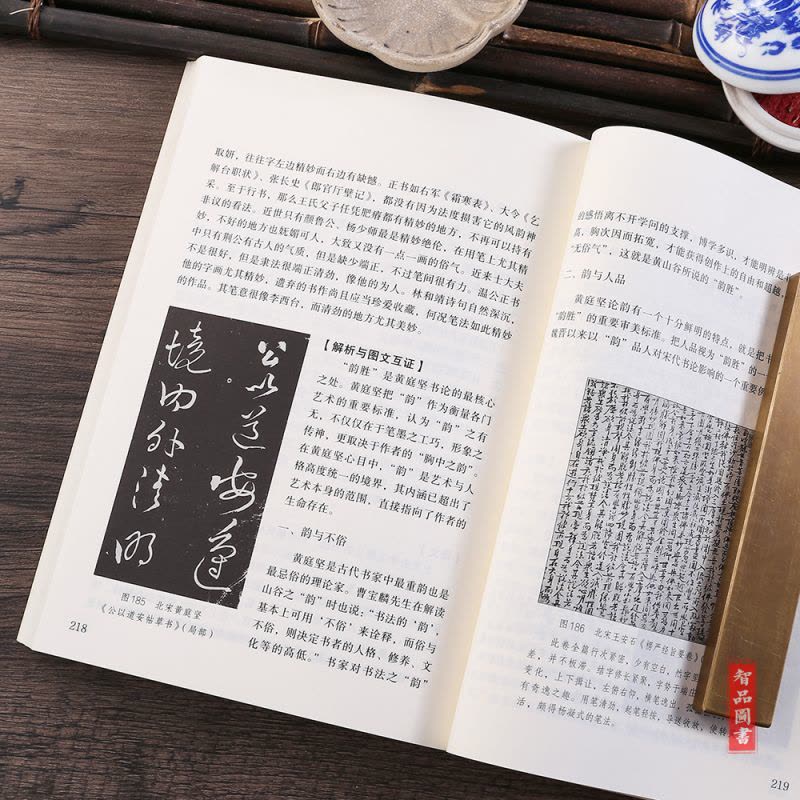 取妍，往往字左边精妙而右边有缺憾。正书如右军《霜寒表》、大令《乞
解台职状》、张长史《郎官厅壁记》，都没有因为法度损害它的风韵神
采。至于行书，那么王氏父子任凭肥瘠都有精妙的地方，不再可以持有
非议的看法。近世只有颜鲁公、杨少师最是精妙绝伦，在用笔上尤其精
妙，不好的地方也妩媚可人，大致又没有一点一画的俗气。近来士大夫
中只有荆公有古人的气质，但是缺少端正，不过笔间很有力。温公正书
不是很好，但是隶法很端正清劲，像他的为人。林和靖诗句自然深沉，
他的字画尤其精妙，遗弃的书作尚且应当珍爱收藏，何况笔法如此精妙
的作品。其笔意很像李西台，而清劲的地方尤其美妙。
公以道安遵
境内外清明
图185 北宋黄庭坚
《公以道安帖草书》（局部）
【解析与图文互证】
“韵胜”是黄庭坚书论的最核心
之处。黄庭坚把“韵”作为衡量各门
艺术的重要标准，认为“韵”之有
无，不仅仅在于笔墨之工巧，形象之
传神，更取决于作者的“胸中之韵”。
在黄庭坚心目中，“韵”是艺术与人
格高度统一的境界，其内涵已超出了
艺术本身的范围，直接指向了作者的
生命存在。
一、韵与不俗
黄庭坚是古代书家中最重韵也是
最忌俗的理论家。曹宝麟先生在解读
山谷之“韵”时也说，“书法的‘韵’，
基本上可用‘不俗’来诠释，而俗与
不俗，则决定书者的人格、修养、文
化等的高低。”书家对书法之“韵”
218
的感悟离不开学问的支撑，博学多识，才能明辨是
，胸次因而拓宽，才能获得创作上的自由和超越，
“无俗气”，这就是黄山谷所说的“韵胜”。
二、韵与人品
黄庭坚论韵有一个十分鲜明的特点，就是把书
“韵胜”的重要审美标准。把人品视为“韵胜”的一
魏晋以来以“韵”品人对宋代书论影响的一个重要例
图186 北宋王安石《楞严经旨要卷》
此卷全篇行次紧密，少有空白，然字
差，并不板滞。结字修长紧聚，字势于端庄
变化，上下揖让，左俯右仰，横笔逸出，
有奇逸之趣。用笔清劲，起笔轻按，导送收放，使转
活，颇得杨凝式的笔法。
219
智品圖書